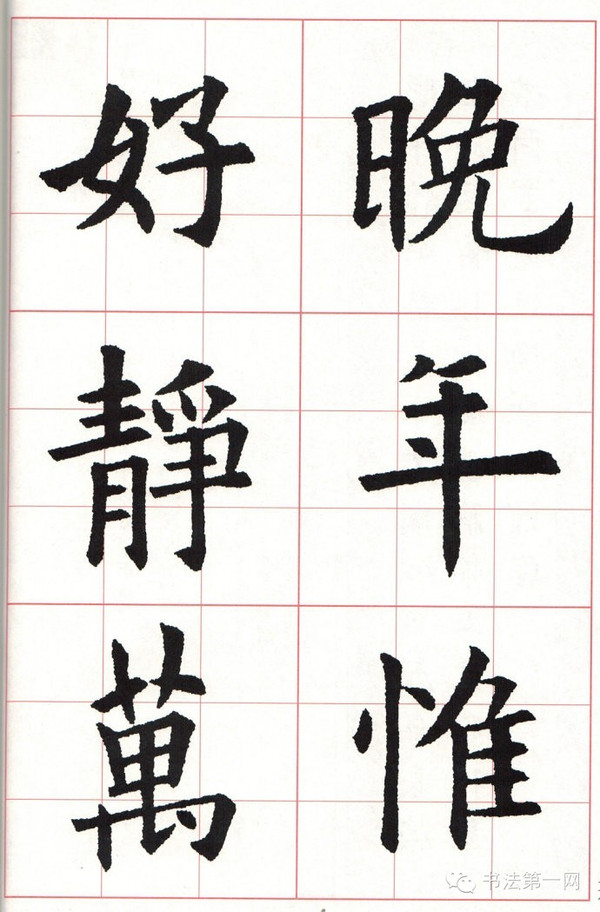 晚年惟
好靜萬
书法第一网